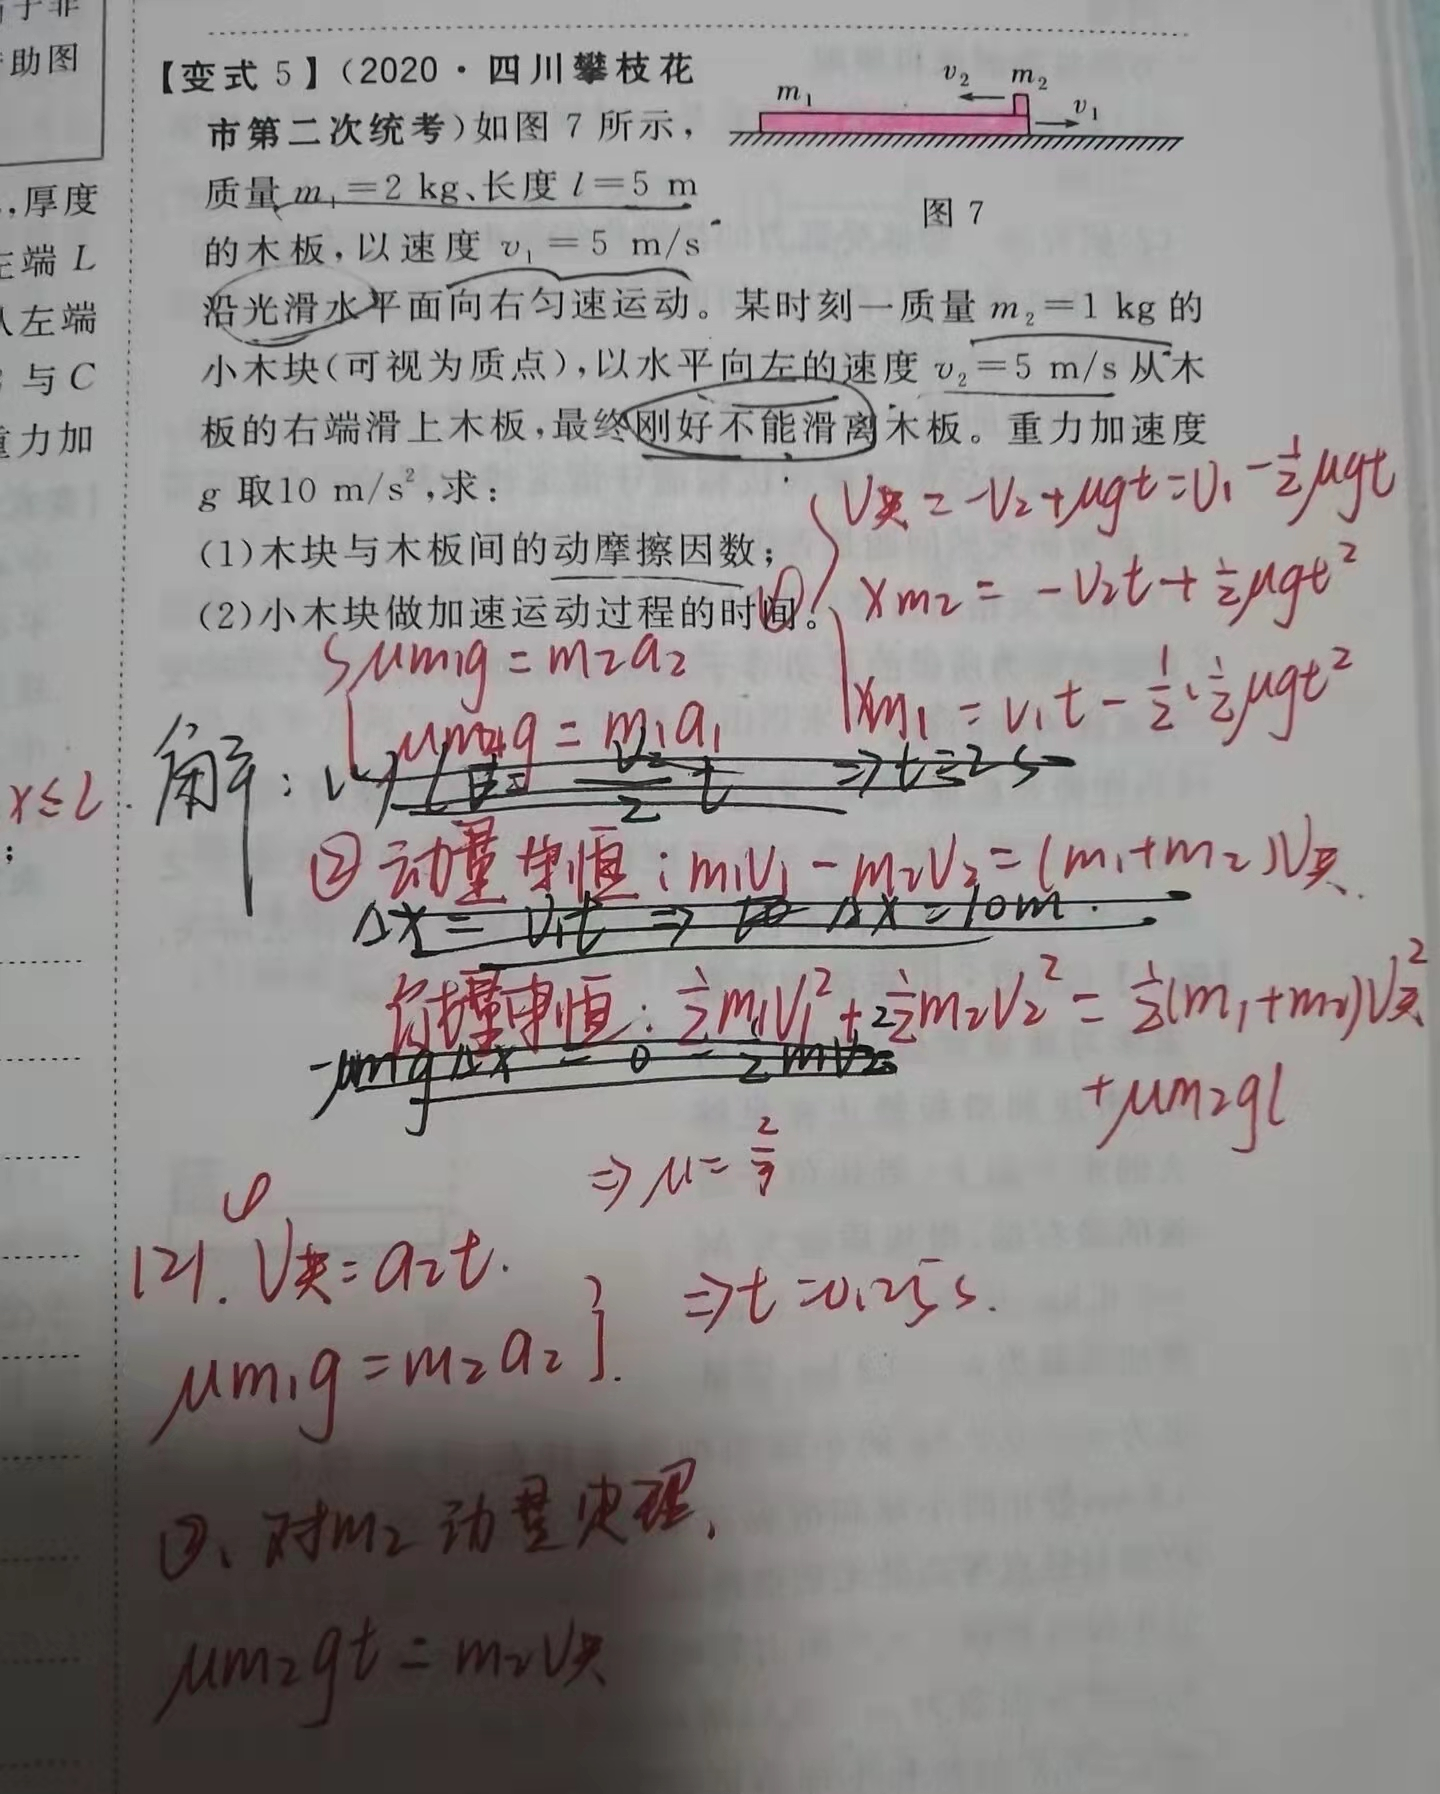 于非
助图
,厚度
左端 L
从左端
与 C
重力加
x≤L
;
【变式 5】(2020·四川攀枝花
市第二次统考)如图 7 所示,
质量 m₁=2 kg、长度 l=5 m
的木板,以速度 v₁=5 m/s
m₁ v₂ m₂ v₁
图 7
沿光滑水平面向右匀速运动。某时刻一质量 m₂=1 kg 的
小木块(可视为质点),以水平向左的速度 v₂=5 m/s 从木
板的右端滑上木板,最终刚好不能滑离木板。重力加速度
g 取10 m/s²,求:
(1)木块与木板间的动摩擦因数;
(2)小木块做加速运动过程的时间。
V共=-V₂+μgt=V₁-½μgt
① xm₂=-V₂t+½μgt²
xm₁=V₁t-½·½μgt²
μm₁g=m₂a₂
μm₂g=m₁a₁
解:(1)
V₂/2 t ⇒t=2s
② 动量守恒:m₁V₁-m₂V₂=(m₁+m₂)V共
Δx=V₁t ⇒ Δx=10m.
能量守恒:½m₁V₁²+½m₂V₂²=½(m₁+m₂)V共²
+μm₂gl
-μmgΔx=0-½mV₂²
⇒μ=
(2).① V共=a₂t.
μm₁g=m₂a₂
⇒t=0.25s.
②、对m₂动量定理,
μm₂gt=m₂V共